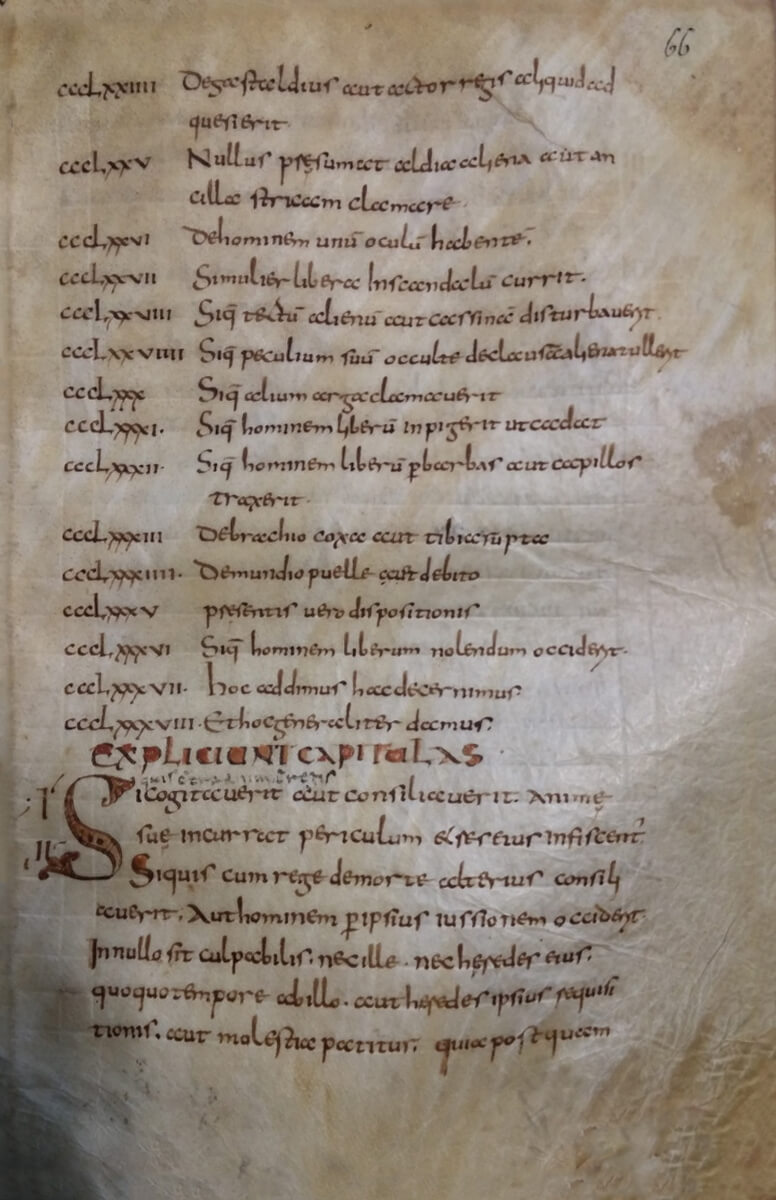 66
cccLxxiiii Degastaldius aut actor regis aliquid ad
quesierit
cccLxxv Nullus presumat aldia aliena aut an
cilla striam clamare.
cccLxxvi Dehominem unū oculū habentē.
cccLxxvii Simulier libera Inscandalū currit.
cccLxxviii Siq̄ tectū alienū aut disturbaverit.
cccLxxviiii Siq̄ peculium suū occulte
cccLxxx Siq̄ alium arga clamaverit
cccLxxxi. Siq̄ hominem liberū inpigerit utcadat
cccLxxxii. Siq̄ hominem liberū ꝑbarbas aut capillos
traxerit.
cccLxxxiii Debrachio coxa aut tibia rupta
cccLxxxiiii. Demundio puelle debito
cccLxxxv presentis vero dispositionis
cccLxxxvi Siq̄ hominem liberum nolendum occiderit.
cccLxxxvii. hoc addimus hac decernimus
cccLxxxviii. Ethoc generaliter damus.
EXPLICIUNT CAPITULAS
Sicogitaverit aut consiliaverit. Anime
sue incurrat periculum & res eius infiscent'
Siquis cum rege demorte alterius consili
averit. Aut hominem ꝑipsius iussionem occiderit.
Innullo sit culpabilis. nec ille. nec heredes eius.
quoquo tempore abillo. aut heredes ipsius requisi
tionis. aut molestia patitur. quia postquam